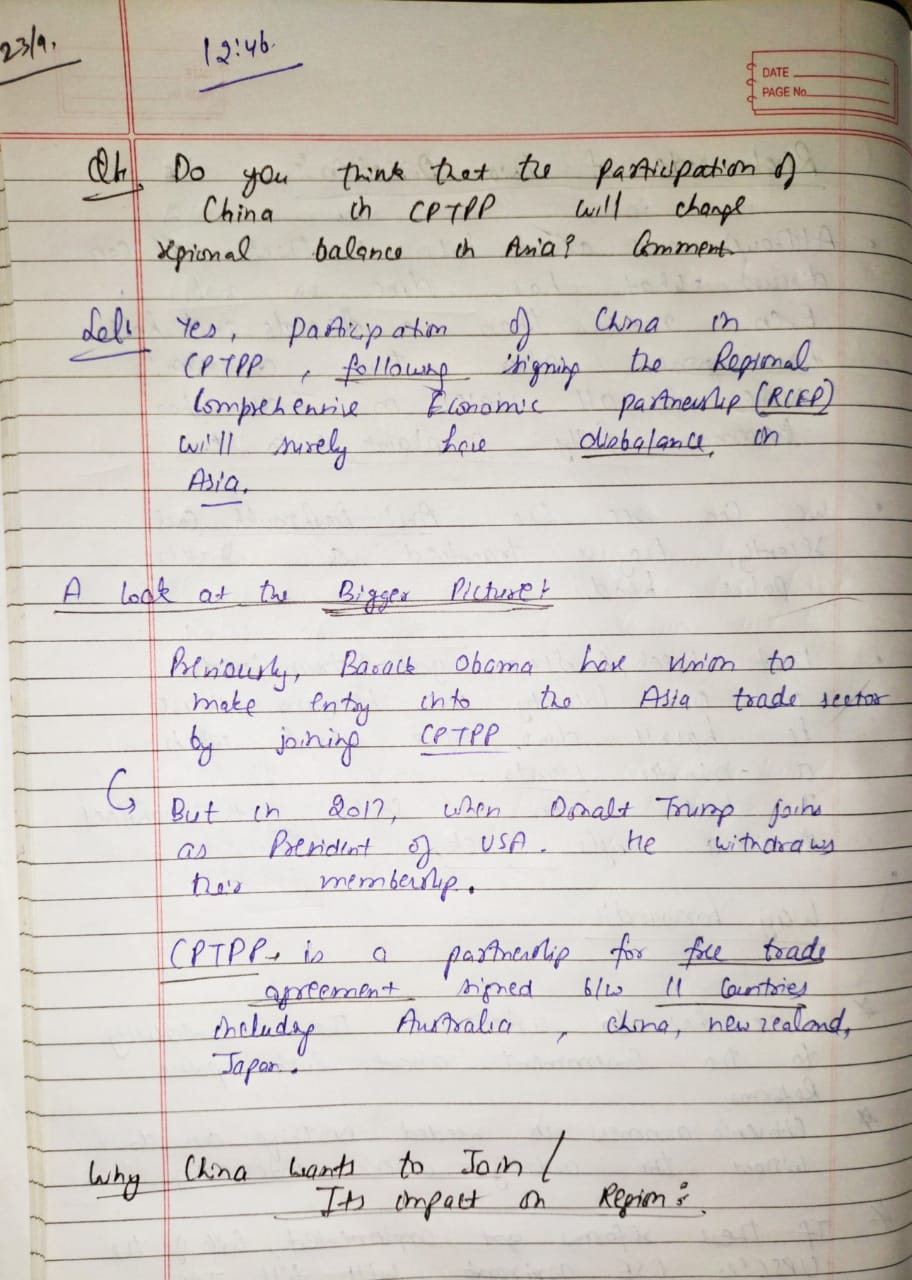 23/9.
12:46
DATE
PAGE No.
Q1. Do you think that the participation of
China in CPTPP will change
regional balance in Asia? Comment.
Sol: Yes, participation of China in
CPTPP, following signing the Regional
Comprehensive Economic partnership (RCEP)
will surely have disbalance in
Asia.
A look at the Bigger Picture:
Previously, Barack Obama have vision to
make entry into the Asia trade sector
by joining CPTPP
But in 2017, when Donalt Trump joins
as President of USA. He withdraws
their membership.
CPTPP → is a partnership for free trade
agreement signed b/w 11 Countries
including Australia, China, new zealand,
Japan.
Why China wants to Join /
Its impact on Region: